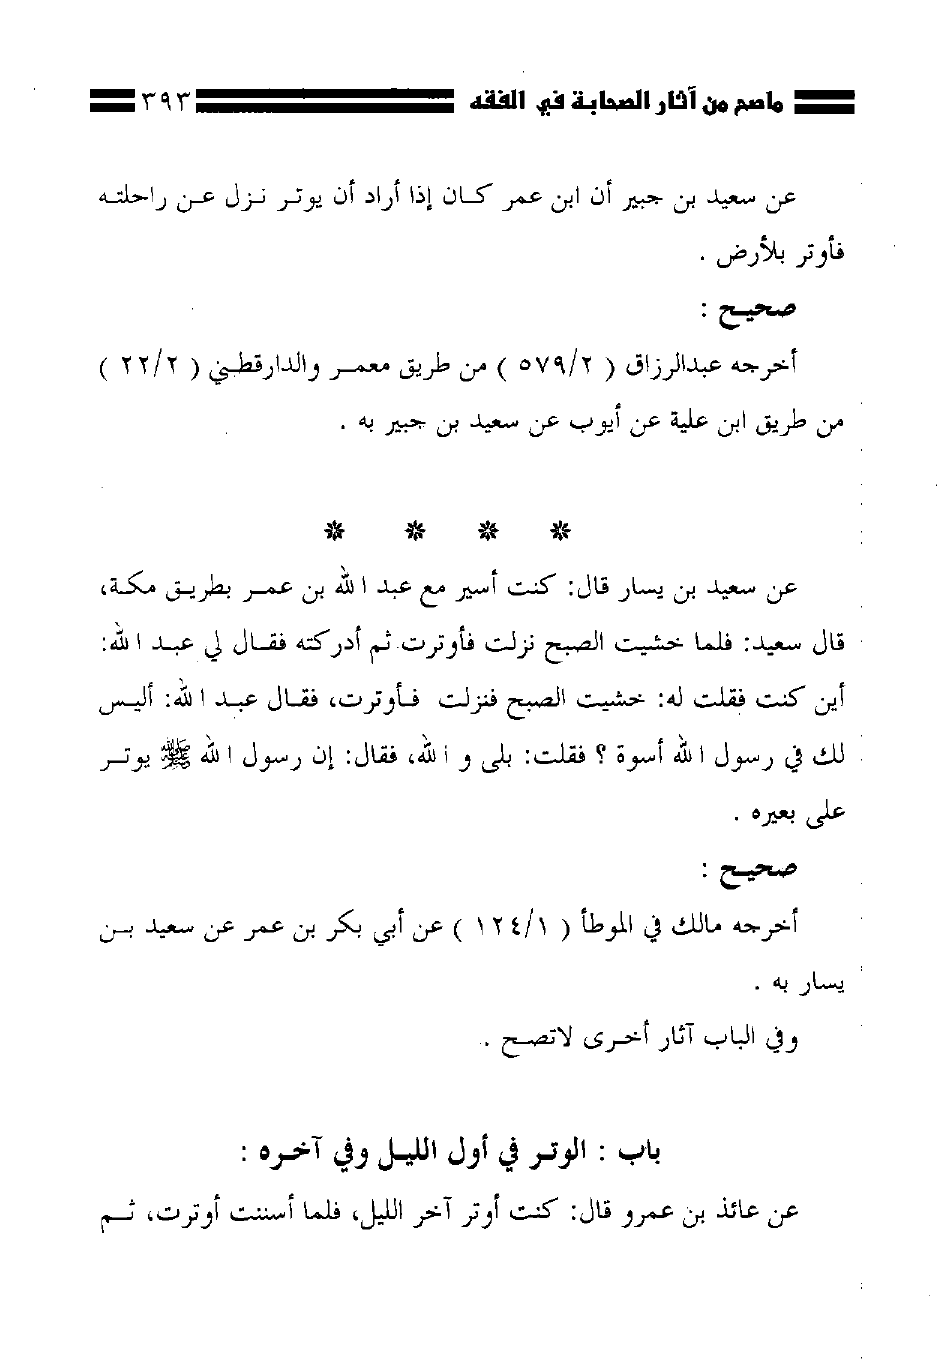 ماصح من آثار الصحابة في الفقه ٣٩٣
عن سعيد بن جبير أن ابن عمر كان إذا أراد أن يوتر نزل عن راحلته
فأوتر بالأرض .
صحيح :
أخرجه عبدالرزاق ( ٥٧٩/٢ ) من طريق معمر والدارقطني ( ٢٢/٢ )
من طريق ابن علية عن أيوب عن سعيد بن جبير به .
* * * *
عن سعيد بن يسار قال: كنت أسير مع عبد الله بن عمر بطريق مكة،
قال سعيد: فلما خشيت الصبح نزلت فأوترت ثم أدركته فقال لي عبد الله:
أين كنت فقلت له: خشيت الصبح فنزلت فأوترت، فقال عبد الله: أليس
لك في رسول الله أسوة ؟ فقلت: بلى و الله، فقال: إن رسول الله ﷺ يوتر
على بعيره .
صحيح :
أخرجه مالك في الموطأ ( ١٢٤/١ ) عن أبي بكر بن عمر عن سعيد بن
يسار به .
وفي الباب آثار أخرى لاتصح .
باب : الوتر في أول الليل وفي آخره :
عن عائذ بن عمرو قال: كنت أوتر آخر الليل، فلما أسننت أوترت، ثم